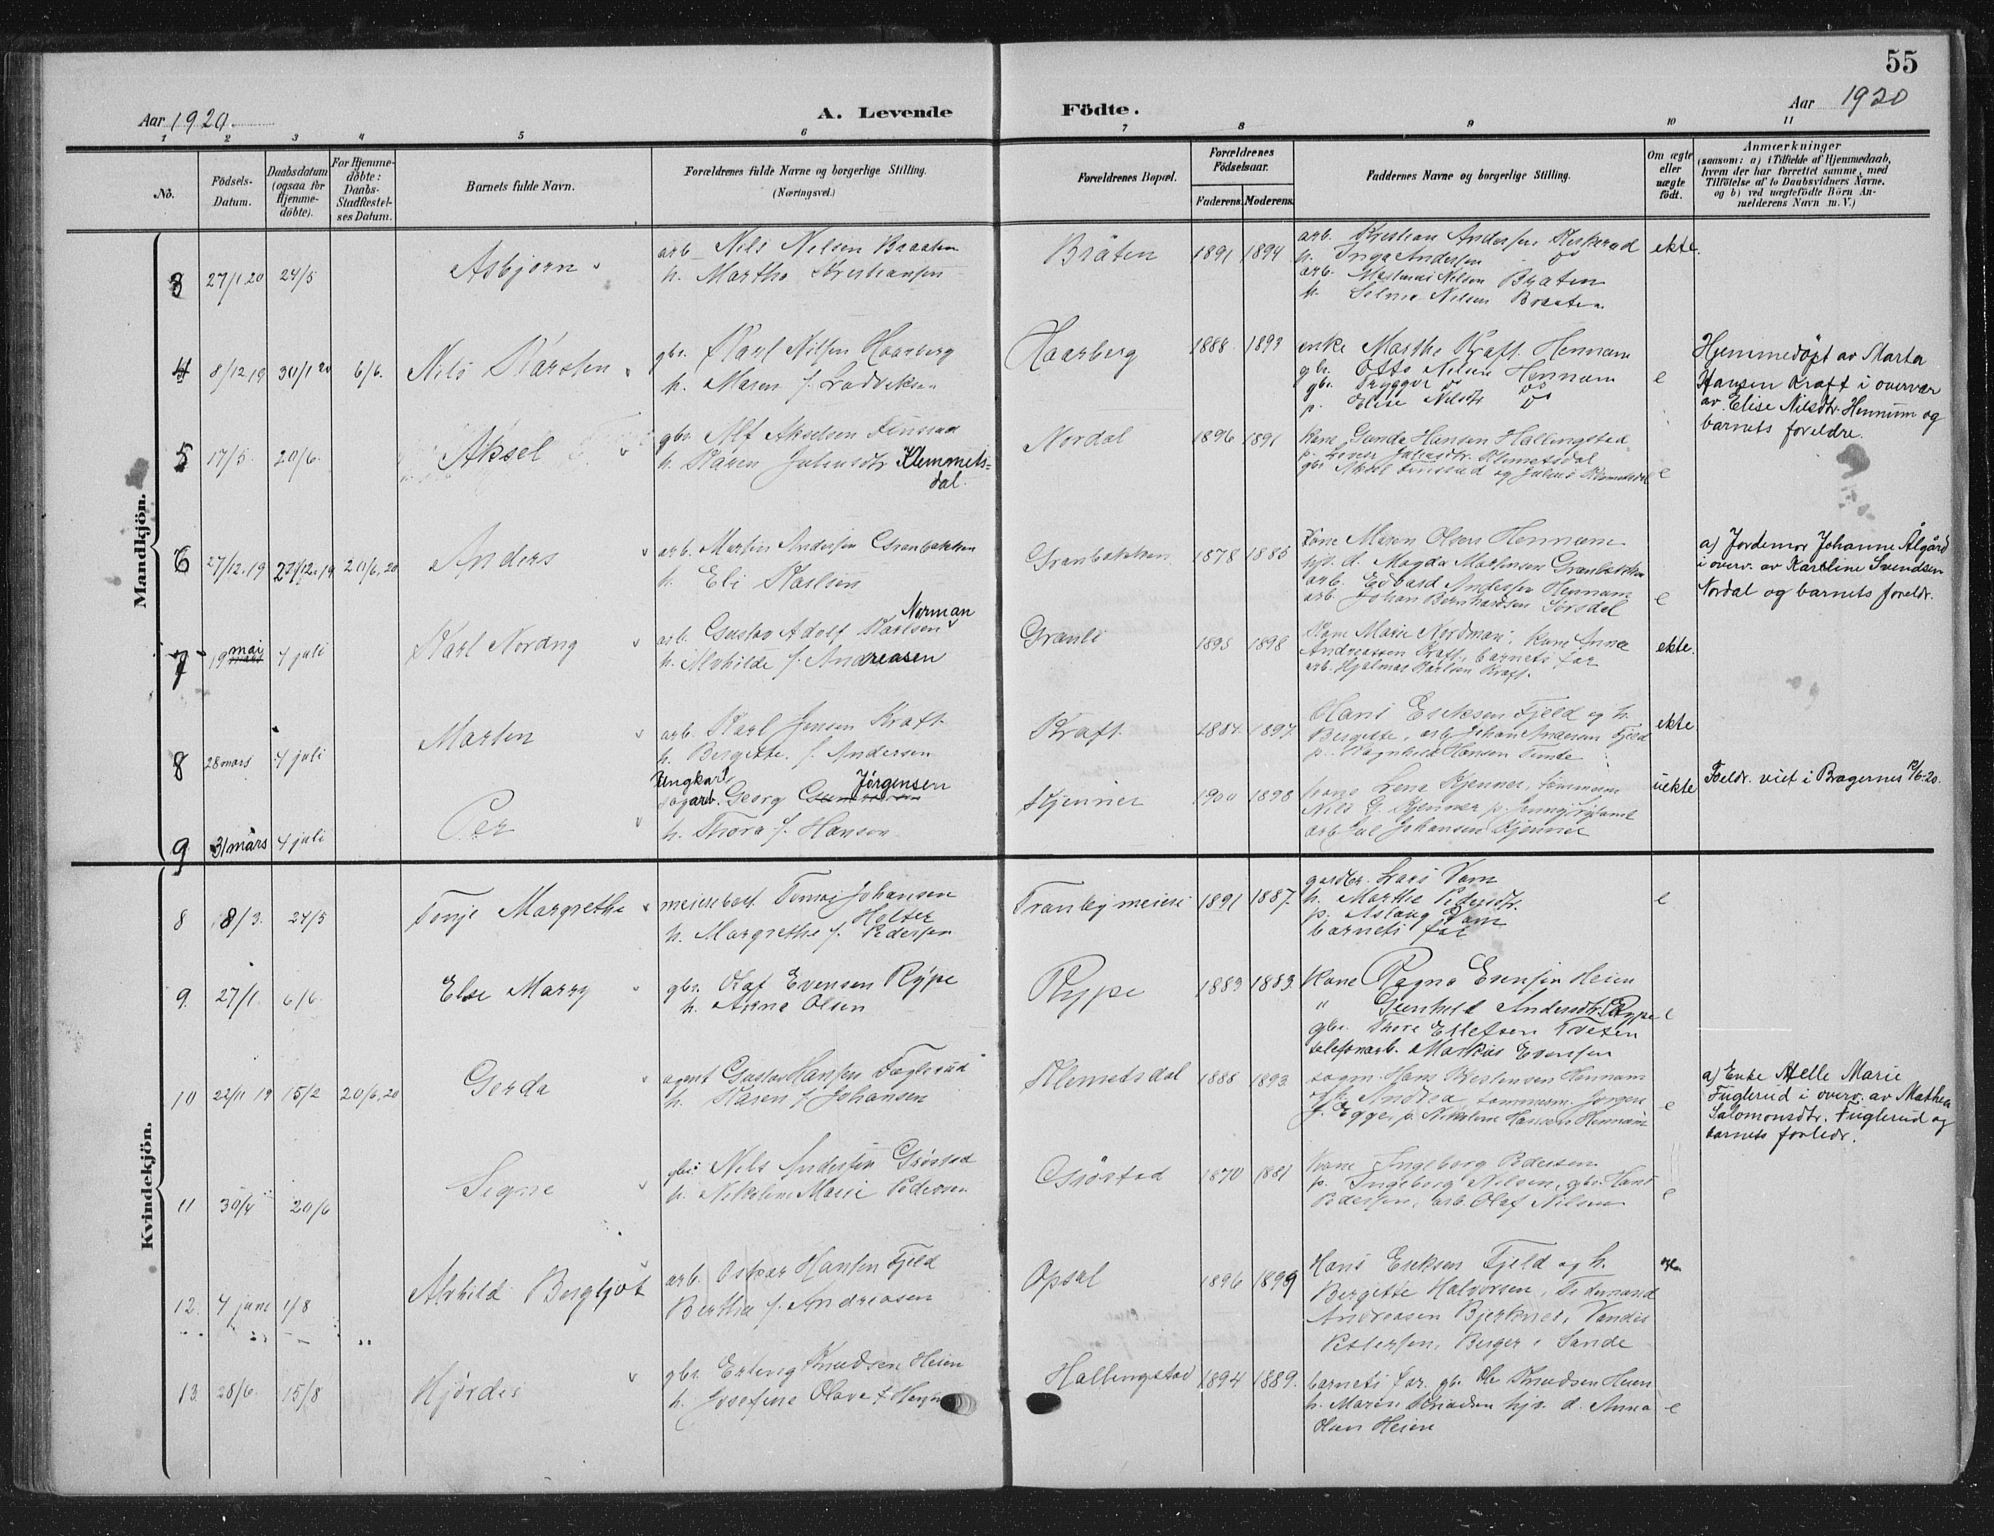 55
Aar 1920.
A. Levende Födte.
Aar 1920
1 2 3 4 5 6 7 8 9 10 11
No.
Födsels-Datum.
Daabsdatum (ogsaa for Hjemme-döbte).
For Hjemme-döbte: Daabs-Stadfæstel-ses Datum.
Barnets fulde Navn.
Forældrenes fulde Navne og borgerlige Stilling.
(Næringsvei.)
Forældrenes Bopæl.
Forældrenes Födselsaar.
Faderens. Moderens.
Faddernes Navne og borgerlige Stilling.
Om ægte eller uægte födt.
Anmærkninger
(saasom: a) i Tilfælde af Hjemmedaab,
hvem der har forrettet samme, med
Tilföielse af to Daabsvidners Navne,
og b) ved uægtefödte Börn An-
melderens Navn m. V.)
Mandkjön.
3 27/1 20 24/5 Asbjørn
arb. Nils Nilsen Braaten
h. Martha Kristiansen
Bråten 1891 1894
arb. Kristian Andersen
h. Inga Andersen
arb. Nilsen Braten
h. Nilsen Braaten
ekte.
4 8/12 19 30/1 20 6/6. Nils Karsten
gbr. Karl Nilsen Haarberg
h. Maren f. Ludviksen
Haarberg 1888 1893
enke Marthe Kraft. Hennum
gbr. Otto Nilsen Hennum
gbr. Trygve do do
p. Elise Nilsdtr do
e
Hjemmedøpt av Marta
Hansen Kraft i overvær
av Elise Nilsdtr. Hennum og
barnets foreldre.
5 17/5. 20/6. Aksel
gbr. Alf Akselsen
h. Karen Juliusdtr Klemmets-
dal.
Nordal 1896 1891
kone Gunda Hansen Hallingstad
p. Juliusdtr. Klemetsdal
gbr. Aksel og Julius Klemetsdal
e
6 27/12.19 27/12.19 20/6.20 Anders
arb. Martin Andersen Granbakken
h. Eli Karlsen
Granbakken 1878 1885
Kone Maren Olsen Hennum
hjv. d. Magda Martinsen Granbakken
arb. Edvard Andersen Hennum
arb. Johan Bernhardsen Sørsdal
e
a) Jordemor Johanne Ålgård
i overv. av Karoline Svendsen
Nordal og barnets foreldr.
7 19 mars mai 4 juli Karl Nordng
Norman
arb. Gustav Adolf Karlsen
h. Mathilde f. Andreasen
Granli 1895 1898
Kone Marie Nordman, kone Anna
Andreassen Kraft, barnets far
arb. Hjalmar Karlsen Kraft.
ekte.
8 28 mars 4 juli Marten
arb. Karl Jensen Kraft
h. Bergitte. f. Andersen
Kraft 1884 1897.
Hans Eriksen Fjeld og h.
Bergitte, arb. Johan Andersen Fjeld
p. Ragnhild Hansen
ekte
9 31 mars 4 juli Per
Ungkarl Jørgensen
Georg
h. Thora f. Hansen
Kjenner 1900 1898
Lena Kjenner,
Nils G. Kjenner p. Jenny
arb. Johansen Kjenner
uekte
Foreldr. viet i Bragernes 12/6.20.
Kvindekjön.
8 8/3. 24/5 Tonje Margrethe
meieribest. Johansen
Holter
h. Margrethe f. Pedersen
Tranby meieri 1891 1887.
gardbr. Lars Vam
h. Marthe Pedersdtr.
p. Aslaug Vam
barnets far
e
9. 27/1. 6/6 Else Marry
gbr. Olaf Evensen Rype
h. Anna Olsen
Rype 1883 1883.
Kone Ragna Evensen Heien
" Gunhild Andersdtr. Rype
gbr. Thore Ellefsen
telefonarb. Markus Evensen
e
10 22/11 19 15/2 20/6.20 Gerda
agent Gustav Hansen Fuglerud
h. Karen f. Johansen
Klemetsdal 1888 1893.
Hans Kristensen Hennum
Andrea, tømmerm. Jørgen
J. Egge, p. Nikoline Hansen Hennum
e
a) Enke Helle Marie
Fuglerud i overv. av Mathea
Salomonsdtr. Fuglerud og
barnets foreldr.
11 30/4 20/6 Signe
gbr. Nils Andersen Grøstad
h. Nikoline Marie Pedersen
Grøstad 1870 1881
Kone Ingeborg Pedersen
p. Ingeborg Nilsen, gbr. Hans
Pedersen, arb. Olaf Nilsen
e
12. 4 juni 1/8 Alvhild Bergljot
arb. Oskar Hansen Fjeld
Bertha f. Andreasen
Opsal 1896 1899
Hans Eriksen Fjeld og h.
Bergitte Halvorsen, Ferdinand
Andreasen Bjerknes, Vandis
Pettersen, Berger i Sande
13. 28/6. 15/8 Hjørdis
gbr. Erling Knudsen Heien
h. Josefine Olava f.
Hallingstad 1894 1889.
barnets far, gbr. Ole Knudsen Heien
h. Maren Knudsen hjv. d. Anna
Heien
e